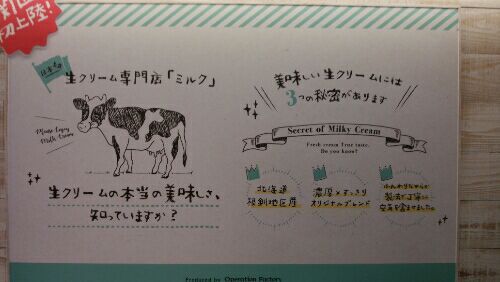 初上陸!
日本初
生クリーム専門店「ミルク」
Please Enjoy
Milk Cream
生クリームの本当の美味しさ、
知っていますか?
美味しい生クリームには
3つの秘密があります
Secret of Milky Cream
Fresh cream True taste.
Do you know?
北海道
根釧地区産
濃厚×すっきり
オリジナルブレンド
ふんわりながらか
製法で丁寧に
空気を含ませました。
Produced by Operation Factory